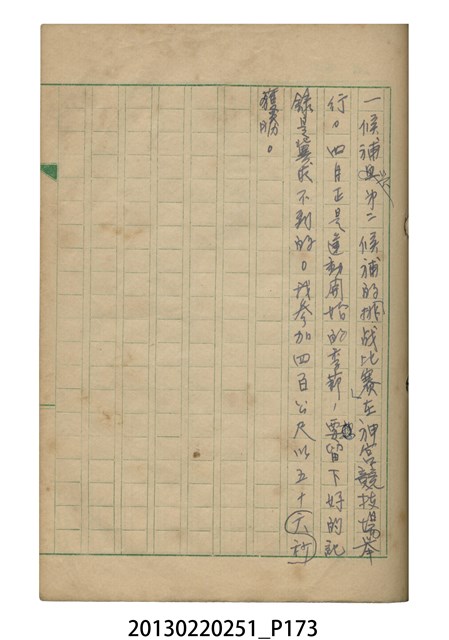 一候補與第二候補的挑战比賽在神宮競技場举
行。四月正是運動開始的季節，要留下好的記
錄是辦不到的。我參加四百公尺以五十六秒
獲勝。
20130220251_P173